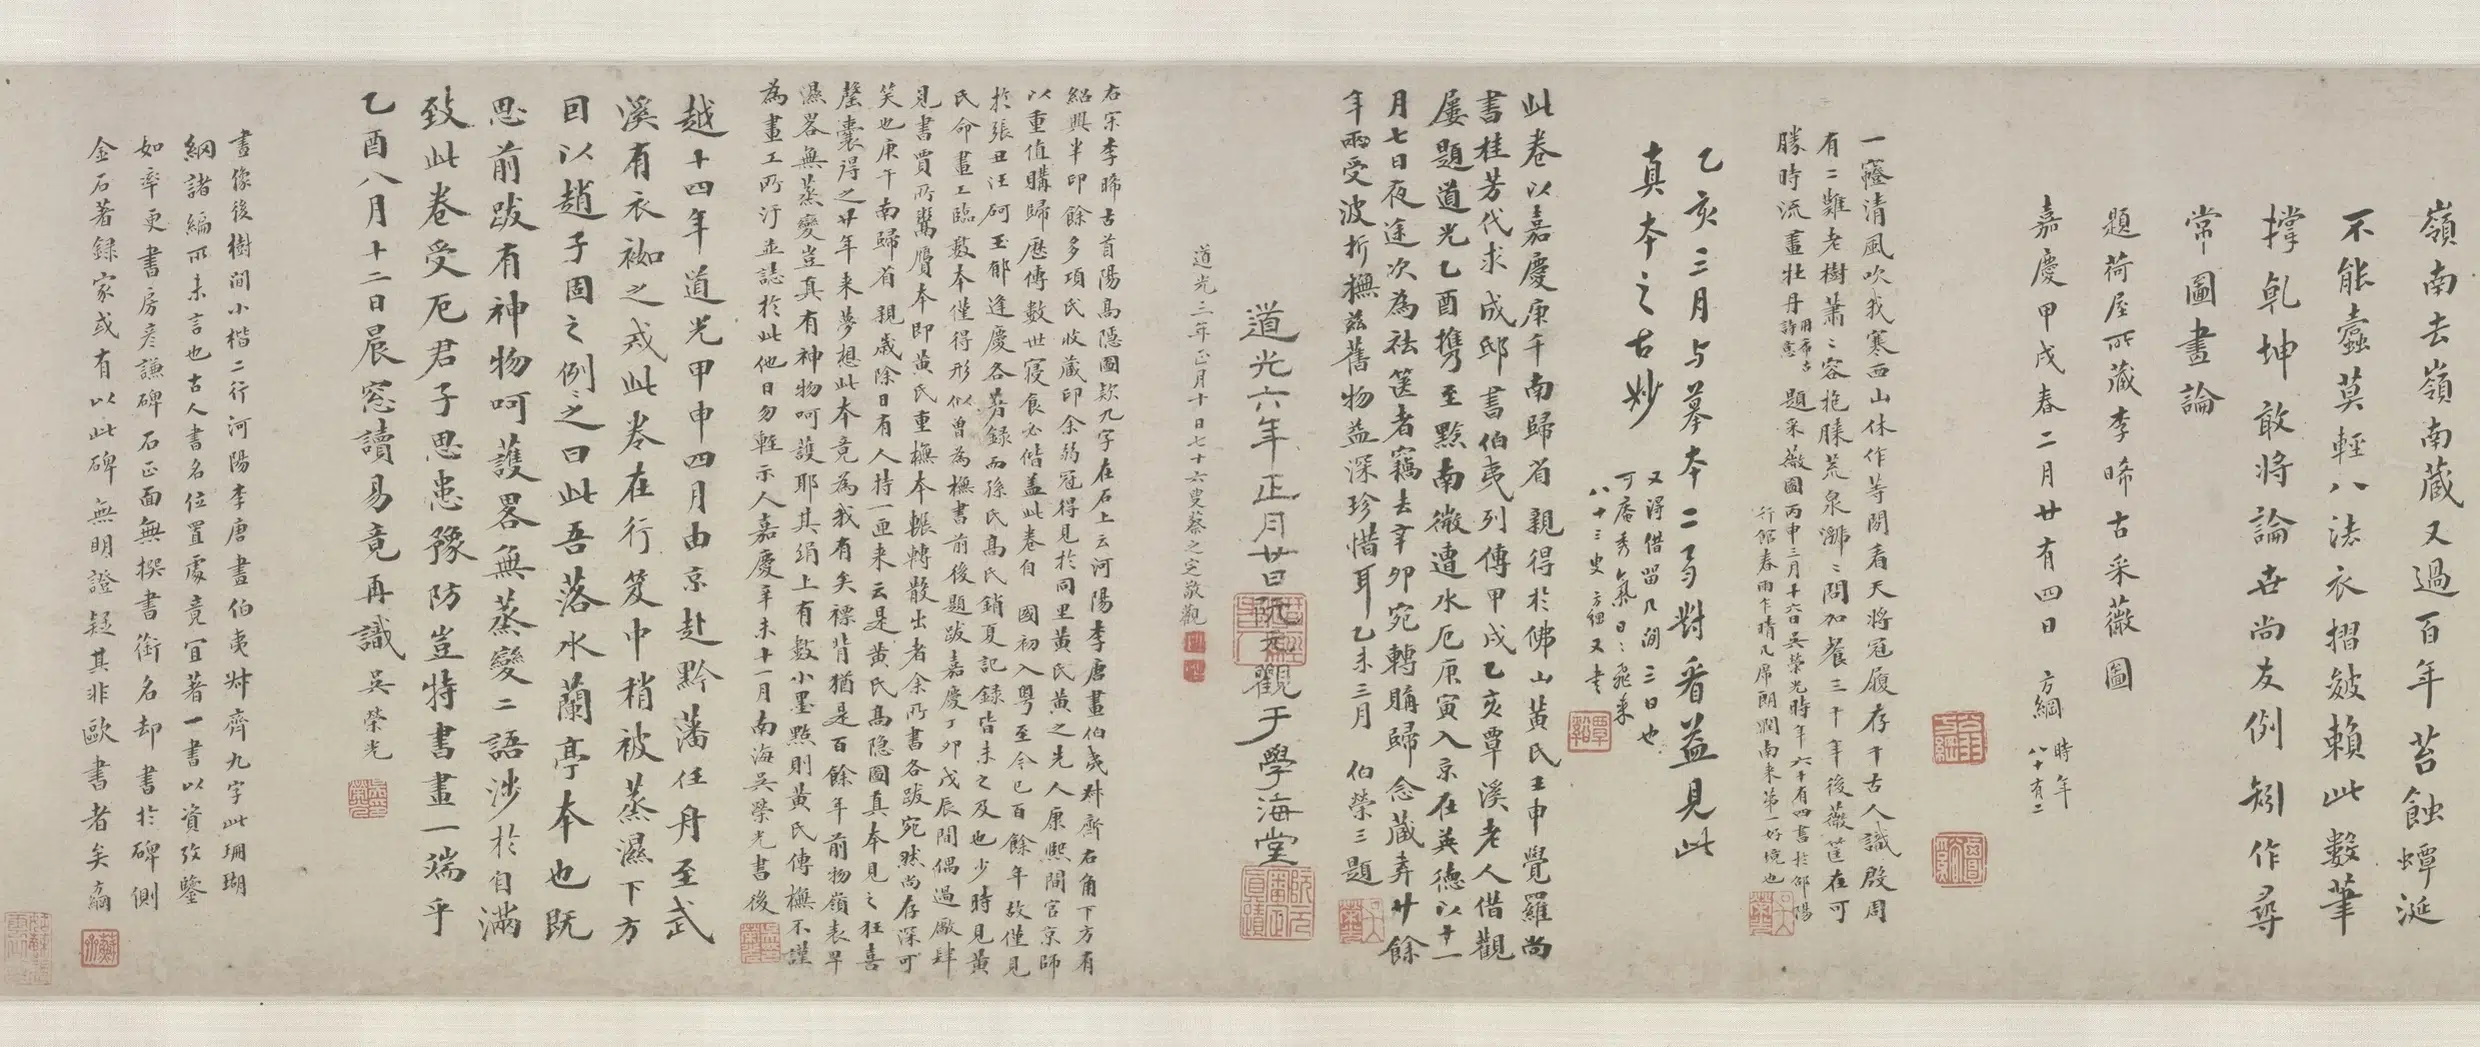 嶺南去嶺南藏又過百年苔蝕蟫涎
不能蠹莫輕八法衣摺皴賴此數筆
撐乾坤敢將論世尚友例矧作尋
常圖畫論
題荷屋所藏李晞古采薇圖
嘉慶甲戌春二月廿有四日 方綱時年八十有二
一龕清風吹我寒西山休作等閒看天將冠履存千古人識殷周
有二難老樹蕭〻容抱膝荒泉㶁〻問加餐三千年後薇筐在可
勝時流畫牡丹用希古詩意 題采薇圖丙申三月十六日吳榮光時年六十有四書於邵陽
行館春雨乍晴几席朗潤南來第一好境也
乙亥三月与摹本二弓對看益見此
真本之古妙
又淂借留几間三日也
可庵秀氣日〻飛來
八十三叟方綱又書
此卷以嘉慶庚午南歸省親得於佛山黃氏壬申覺羅尚
書桂芳代求成邸書伯夷列傳甲戌乙亥覃溪老人借觀
屢題道光乙酉攜至黔南微遭水厄庚寅入京在英德以十一
月七日夜途次為胠篋者竊去辛卯宛轉購歸念藏弆廿餘
年兩受波折撫茲舊物益深珍惜耳乙未三月 伯榮三題
道光六年正月廿日阮元觀于學海堂
道光三年正月十日七十六叟蔡之定敬觀
右宋李晞古首陽高隱圖款九字在石上云河陽李唐畫伯夷叔齊右角下方有
紹興半印餘多項氏收藏印余弱冠得見於同里黃氏黃之先人康熙間官京師
以重值購歸歷傳數世寢食必偕蓋此卷自 國初入粵至今已百餘年故僅見
於張丑汪砢玉郁逢慶各著錄而孫氏高氏銷夏記錄皆未之及也少時見黃
氏命畫工臨數本僅得形似曾為橅書前後題跋嘉慶丁卯戊辰間偶過廠肆
見書賈所鬻贋本即黃氏重橅本輾轉散出者余所書各跋宛然尚存深可
笑也庚午南歸省 親歲除日有人持一匣来云是黃氏高隐圖真本見之狂喜
罄囊得之廿年来夢想此本竟為我有矣褾背猶是百餘年前物嶺表早
濕畧無蒸變豈真有神物呵護耶其绢上有數小墨點則黃氏傳橅不謹
為畫工所汙並誌於此他日勿輕示人嘉慶辛未十一月南海吳榮光書後
越十四年道光甲申四月由京赴黔藩任舟至武
溪有衣袽之戒此卷在行笈中稍被蒸濕下方
回以趙子固之例〻之曰此吾落水蘭亭本也既
思前跋有神物呵護畧無蒸變二語涉於自滿
致此卷受厄君子思患豫防豈特書畫一端乎
乙酉八月十二日晨窓讀易竟再識 吳榮光
畫像後樹間小楷二行河陽李唐畫伯夷叔齊九字此珊瑚
網諸編所未言也古人書名位置處竟宜著一書以資攷鑒
如率更書房彦謙碑石正面無撰書銜名却書於碑側
金石著録家或有以此碑無明證疑其非歐書者矣